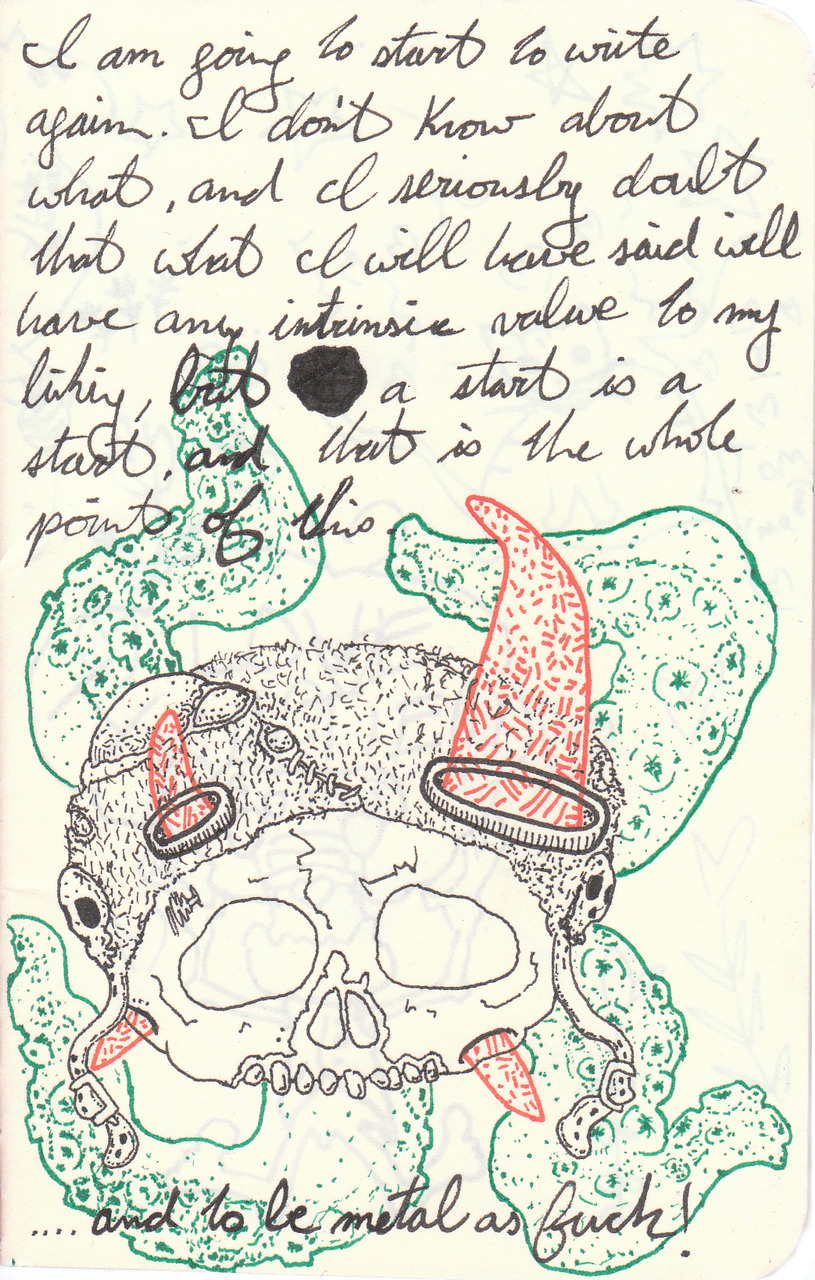 I am going to start to write
again. I don't know about
what, and I seriously doubt
that what I will have said will
have any intrinsic value to my
liking, but a start is a
start, and that is the whole
point of this.
.... and to be metal as fuck!